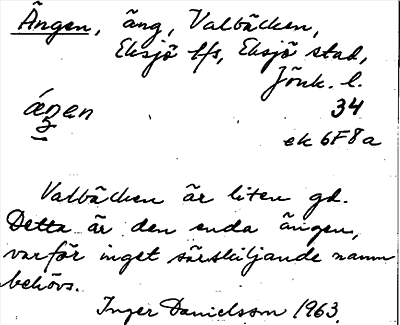 Ängen, äng, Valbäcken,
Eksjö lfs, Eksjö stad,
Jönk. l.
áŋan 34
2
ek 6F8a
Valbäcken är liten gd.
Detta är den enda ängen,
varför inget särskiljande namn
behövs.
Inger Danielsson 1963.